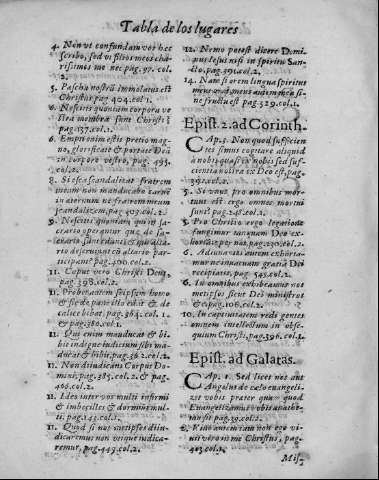 Tabla de los lugares
4. Non vt confundam vos hec
scribo, sed vt filios meos cha-
rissimos me nec pag. 97. col.
2.
5. Pascha nostrũ immolatus est
Christus pag 404. col. 1.
6. Nescitis quoniam corpora ve
stra membra sunt Christi
pag 137. col. 1.
6. Empti enim estis pretio mag-
no, glorificate & portate Deũ
in corpore vestro, pag. 493.
col. 2.
8. Si esca scandalizat fratrem
meum non manducabo carnẽ
in æternum ne fratrem meum
scandalizem, pag. col. 2.
9. Nescitis quoniam qui in sa-
crario operantur que de sa-
crario sunt edunt & qui alta-
rio deseruiunt cũ altario par-
ticipant pag 400. col. 2.
11. Caput vero Christi Deus,
pag 398. col. 2.
11. Probet autem seipsum homo
& sic de pane illo edat & de
calice bibat. pag. 364. col. 1
& pag 380. col. 1.
11. Qui enim manducat & bi-
bit indigne iudicium sibi ma-
ducat & bibit, pag 362. col. 2.
11. Non diiudicans Corpus Do-
mini, pag. 385. col. 2. & pag.
466. col. 2.
11. Ideo inter vos multi infirmi
& imbecilles & dormiunt mul-
ti. pag. 143. col. 2.
11. Quod si nos metipsos diiu
dicaremus non vtique iudica-
remur, pag. 449. col. 2.
12. Nemo potest dicere Domi-
nus Iesus nisi in spiritu San-
cto, pag. 591. col. 2.
14. Nam si orem lingua spiritus
meus orat, mens autem mea si-
ne fructu est pag 529. col. 1.
Epist. 2. ad Corinth.
Cap. 3. Non quod sufficien
tes simus cogitare aliquid
à nobis quasi ex nobis sed suf-
ficientia nostra ex Deo est, pag
391. col. 2.
5. Si vnus pro omnibus mor-
tuus est ergo omnes mortui
sunt, pag. 248. col. 2.
5. Pro Christo ergo legatione
fungimur tanquam Deo ex-
hortãte per nos, pag. 230. col. 2.
6. Adiuuantes autem exhorta-
mur ne in vacuum gratiã Dei
recipiatis, pag. 545. col. 2.
6. In omnibus exhibeamus nos
metipsos sicut Dei ministros
& pag. 106. col. 2.
10. In captiuitatem redigentes
omnem intellectum in obse-
quium Christi, pag. 396. col. 1.
Epist. ad Galatas.
Cap. 1. Sed licet nos aut
Angelus de cælo euangeli-
zet vobis præter quam quod
Euangelizamus vobis anathe-
ma sit pag. 30. col. 2.
2. Viuo autem iam non ego vi-
uit vero in me Christus, pag.
col. 1.
Mis-